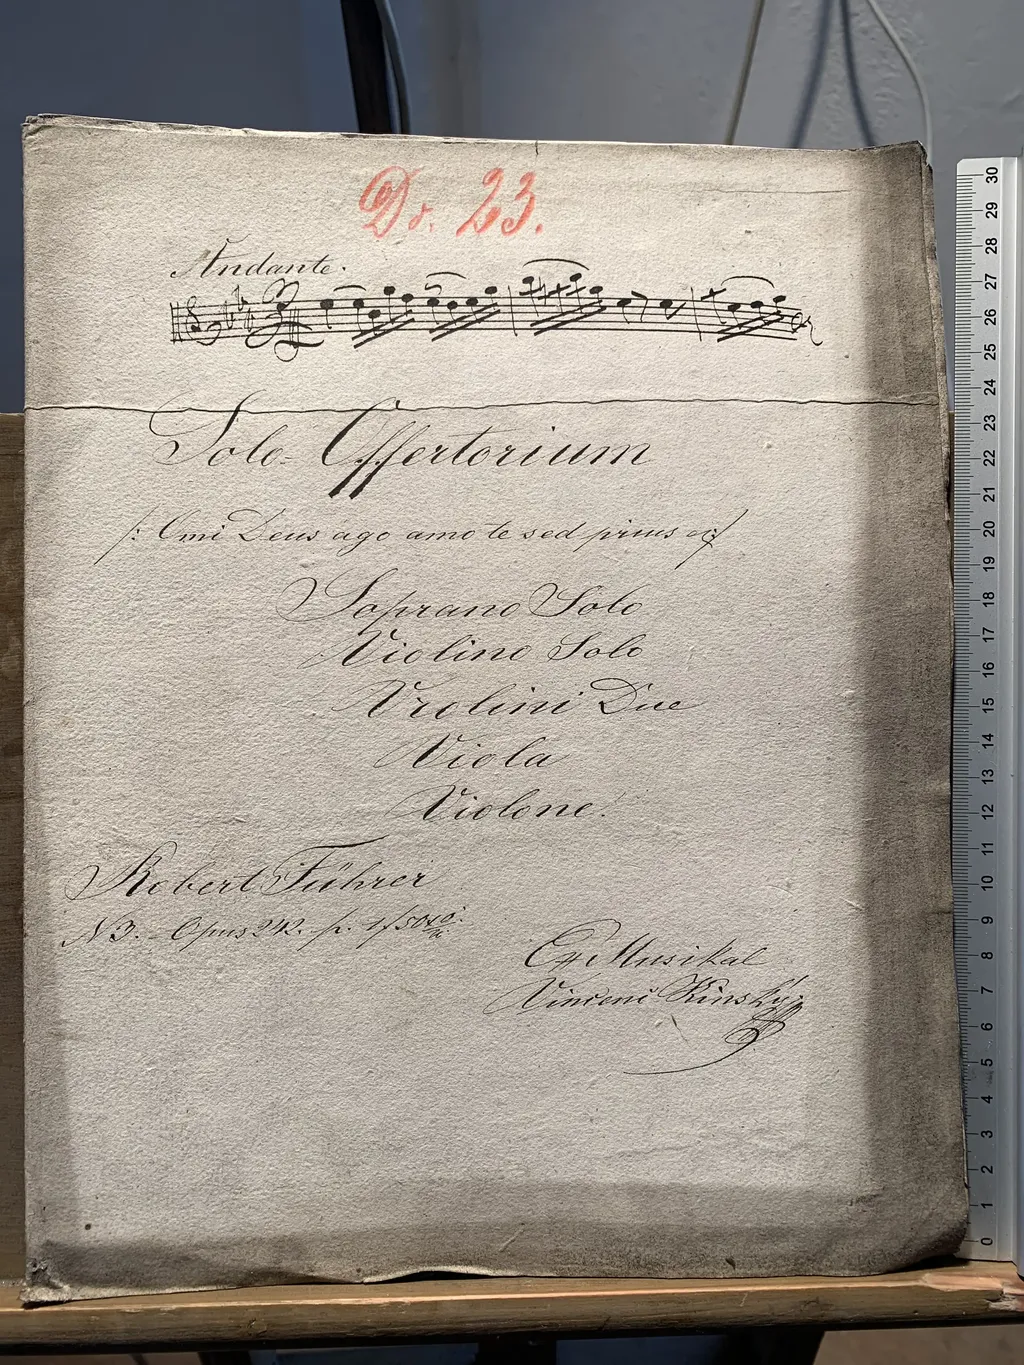 Do. 23.
Andante.
Solo-Offertorium
/: O mi Deus ago amo te sed prius
Soprano Solo
Violino Solo
Violini Due
Viola
Violone.
Robert Führer
N 3. - Opus 242.
Ex Musikal
Vincenc Kinský
30
29
28
27
26
25
24
23
22
21
20
19
18
17
16
15
14
13
12
11
10
9
8
7
6
5
4
3
2
1
0